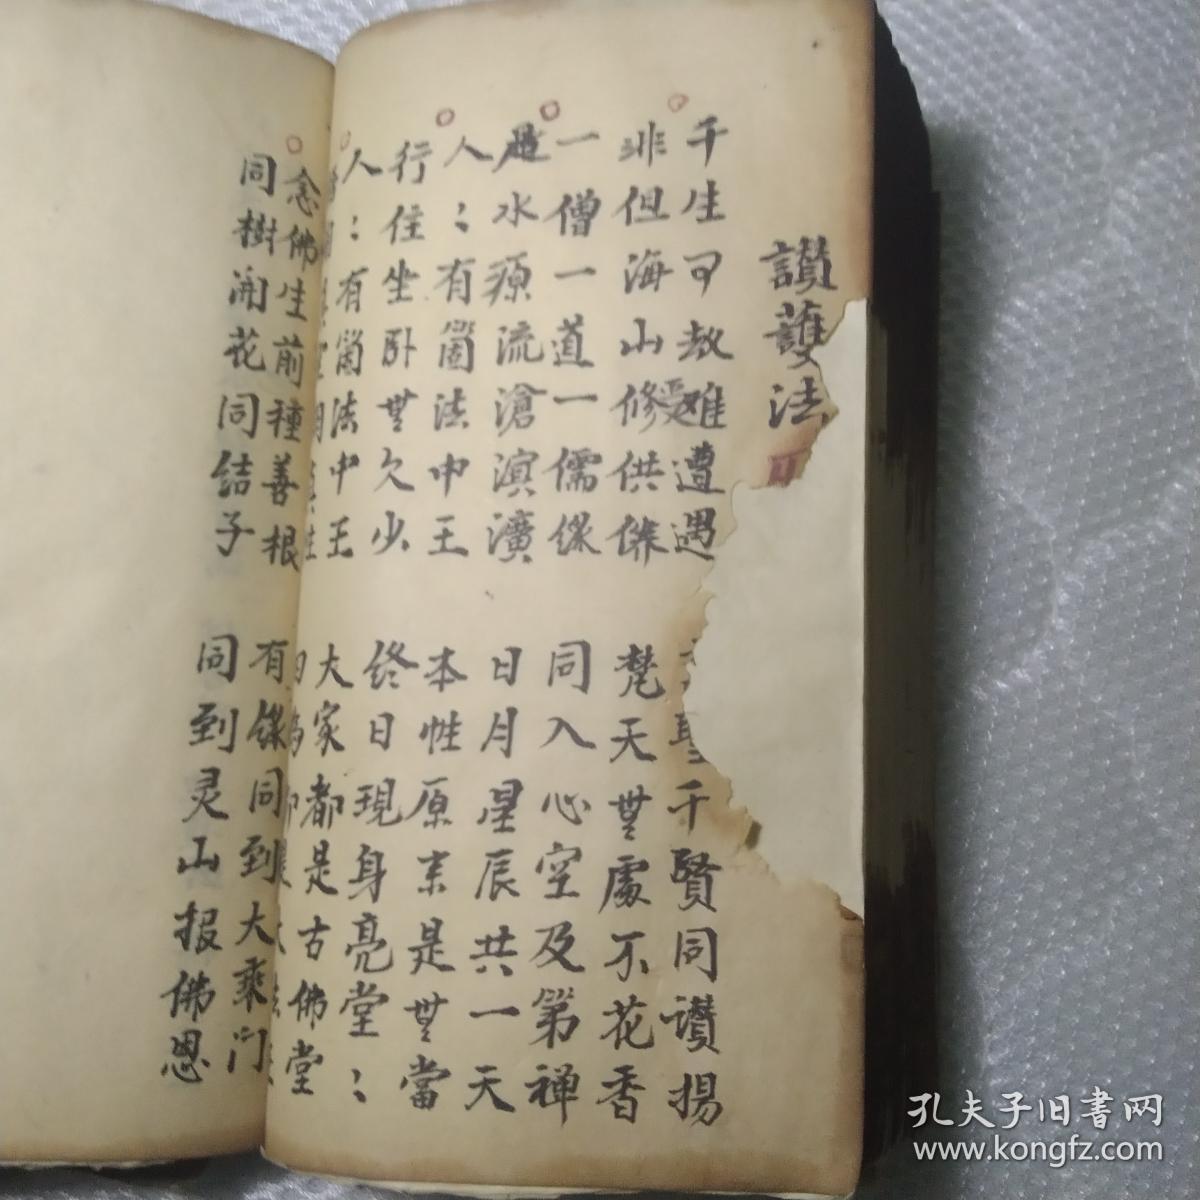 讃護法
千生可教难遭遇 聖千賢同讃揚
非但海山修供俻 梵天無處不花香
一僧一道一儒缘 同入心空及第禅
水源流滄溟瀇 日月星辰共一天
人〻有箇法中王 本性原来是無當
行住坐卧無欠少 终日現身亮堂〻
人〻有箇法中王 大家都是古佛堂
念佛生前種善根 有缘同到大乘门
同樹開花同结子 同到灵山报佛恩
孔夫子旧書网
www.kongfz.com